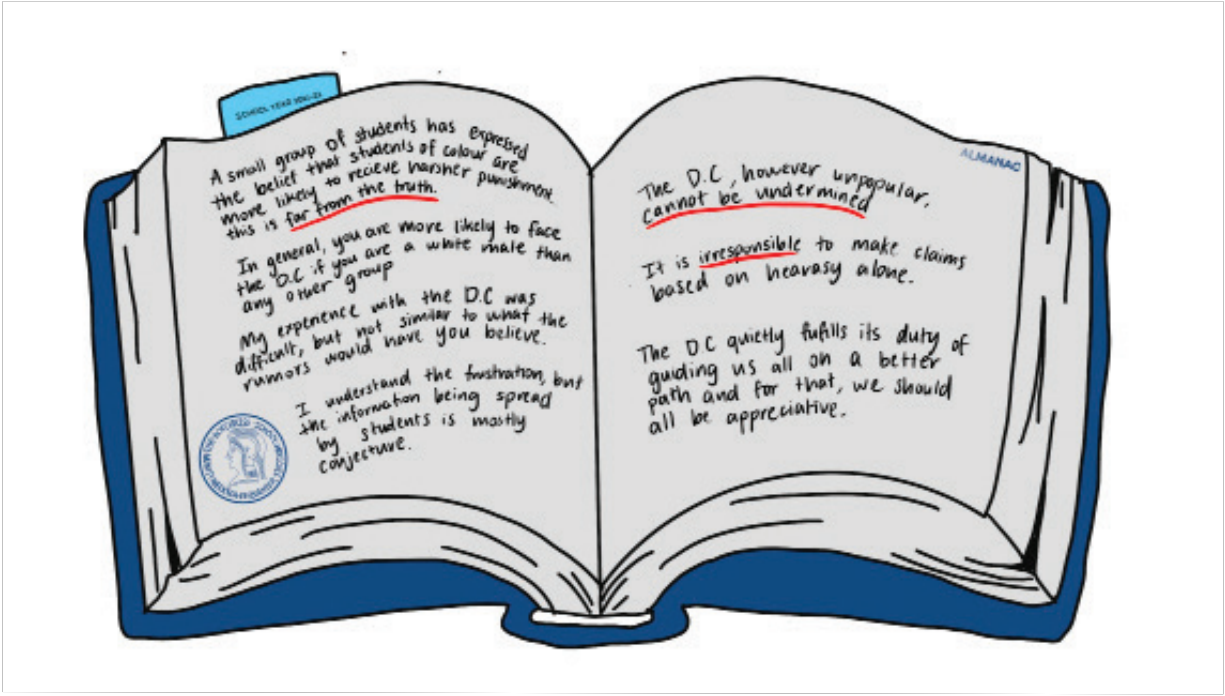 SCHOOL YEAR
A small group of students has expressed
the belief that students of colour are
more likely to recieve harsher punishment.
this is far from the truth.
In general, you are more likely to face
the D.C if you are a white male than
any other group
My experience with the D.C was
difficult, but not similar to what the
rumors would have you believe.
I understand the frustration, but
the information being spread
by students is mostly
conjecture.
ALMANAC
The D.C, however unpopular,
cannot be undermined
It is irresponsible to make claims
based on hearasy alone.
The DC quietly fufills its duty of
guiding us all on a better
path and for that, we should
all be appreciative.